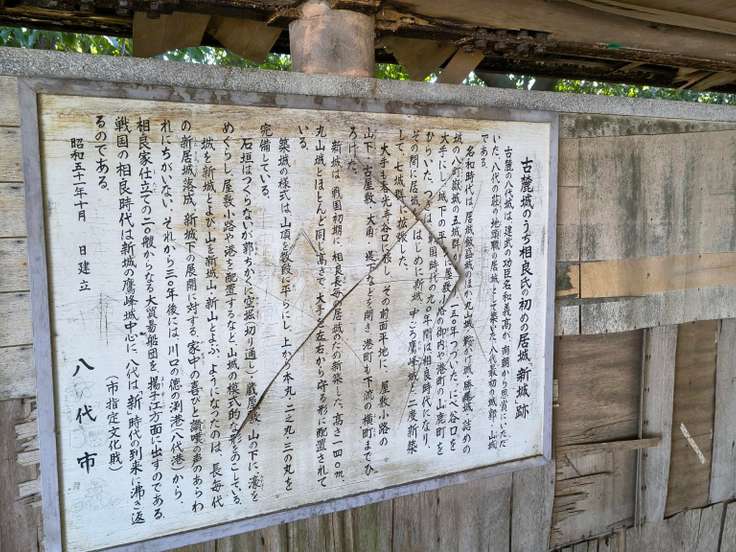 古麓城のうち相良氏の初めの居城、新城跡
古麓の八代城は、建武の功臣名和義高が、南朝から恩賞にいただ
いた、八代の荘の地頭職の居城として築いた、八代最初の城郭・山城
である。
名和時代は、居城飯盛城のほか丸山城、鞍かけ城、勝尾城、詰めの
城の八町嶽城の五城群が一五〇年つづいた。にべ谷口を
大手にし、城下の平地に屋敷小路の御内や港町の山鹿町を
ひらいた。つぎは戦国時代の九〇年間は相良時代になり、
その間に居城をはじめに新城、中ごろ鷹峰城と二度新築
して、七城群に拡張した。
大手も春光寺谷口に移し、その前面平地に、屋敷小路の
山下、古屋敷、大角、堤下などを開き、港町も下流の横町までひ
ろげた。
新城は、戦国初期に、相良長毎が居城のため新築した、高さ一四〇m、
丸山城とほとんど同じ高さで、大手を左右から守る形に配置されて
いる。
築城の様式は、山頂を数段に平らにし、上から本丸、二之丸、三の丸を
完備している。
石垣はつくらないが、郭ちかくに空掘(切り通し)、蔵屋敷、山の下に、濠を
めぐらし、屋敷小路や港を配置するなど、山城の模式的な形をのこしている。
城を新城とよび、山を新城山・新山とよぶ、ようになったのは、長毎代
の新居城落成、新城下の展開に対する、家中の喜びと讃嘆の声のあらわ
れにちがいない。それから三〇年後には、川口の徳の渕港(八代港)から、
相良家仕立ての二〇艘からなる大貿易船団を、揚子江方面に出すのである。
戦国の相良時代は新城の鷹峰城中心に、八代は新時代の到来に沸き返
るのである。
(市指定文化財)
昭和五十二年十月 日建立
八代市